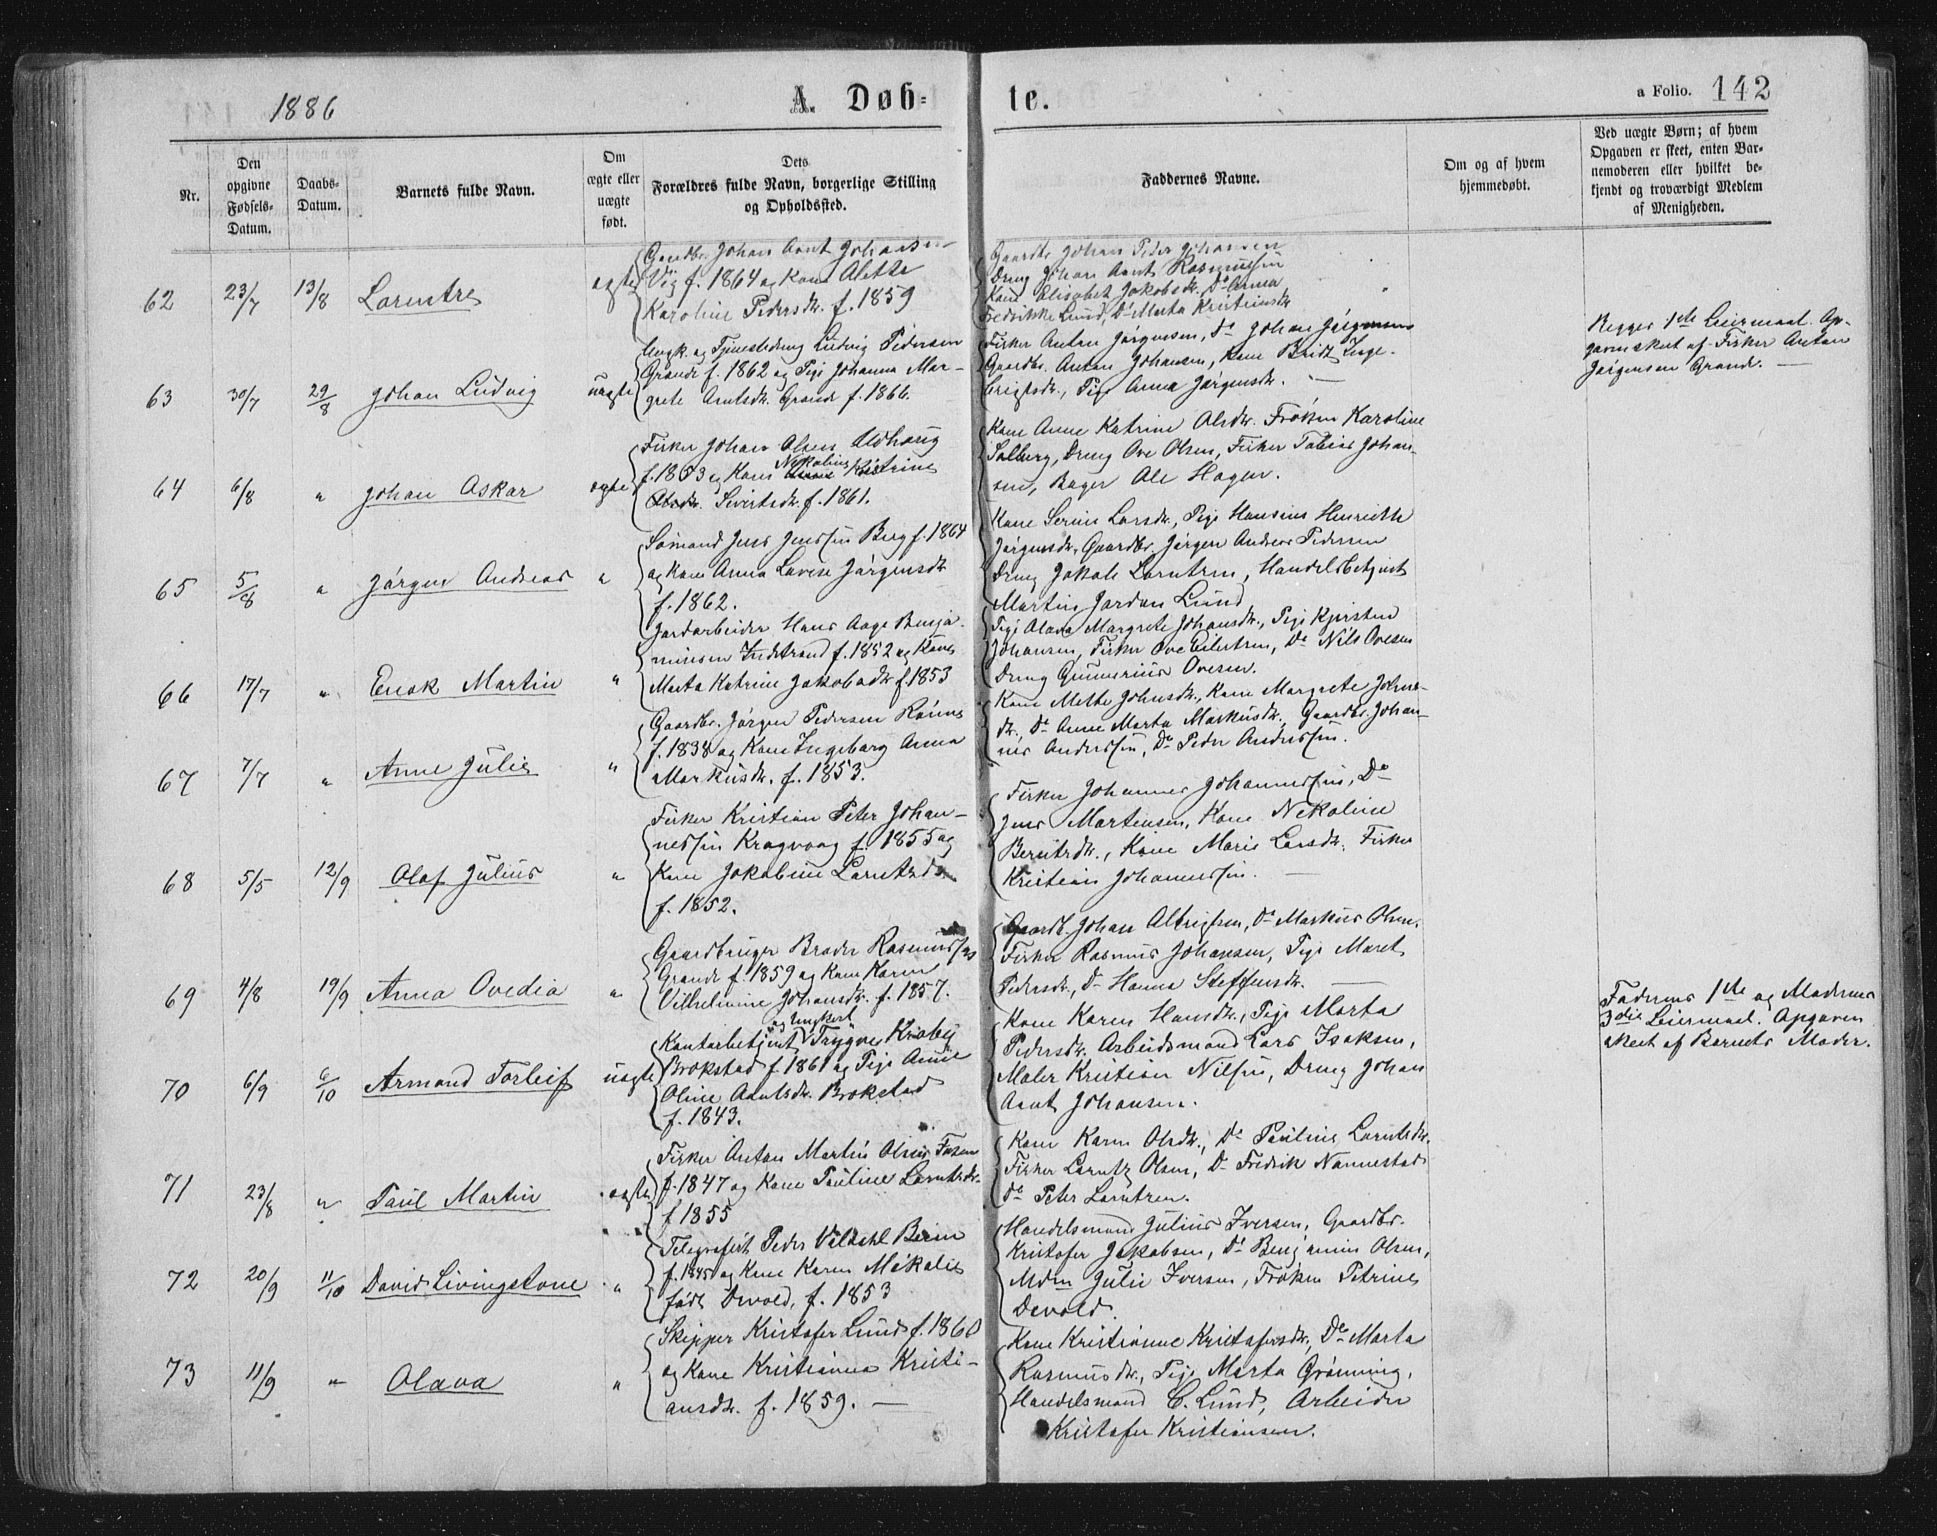 1886
A. Døb=
te.
a Folio. 142
Nr.
Den opgivne Fødsels-Datum.
Daabs-Datum.
Barnets fulde Navn.
Om ægte eller uægte født.
Dets
Forældres fulde Navn, borgerlige Stilling
og Opholdssted.
Faddernes Navne.
Om og af hvem
hjemmedøbt.
Ved uægte Børn; af hvem
Opgaven er skeet, enten Bar-
nemoderen eller hvilket be-
kjendt og troværdigt Medlem
af Menigheden.
62 23/7 13/8 Lorentze ægte
Gaardbr. Johan Arnt Johansen
Vig f. 1864 og Kone Alette
Karoline Pedersdr. f. 1859
Gaardbr Johan Peder Johansen
Dreng Johan Arnt Rasmussen
Kone Elisabet Jakobsdr., Do Anna
Fredrikke Lund, Do Marta Kristiansdr
63 30/7 29/8 Johan Ludvig uægte
Ungk. og Tjenestedreng Ludvig Pedersen
Grande f. 1862 og Pige Johanna Mar-
grete Arntsdr. Grande f. 1866.
Fisker Anton Jørgensen, Do Johan Jørgensen
Gaardbr. Anton Johansen, Kone Beret Inge-
brigtsdr., Pige Anna Jørgensdr. —
Begges 1ste Leiermaal. Op-
gaven skeet af Fisker Anton
Jørgensen Grande. —
64 6/8 " Johan Oskar ægte
Fisker Johan Olsen Udhaug
f. 1863 og Kone Nekoline Katrine
Olsdr. Sivertsdr. f. 1861.
Kone Anne Katrine Olsdr. Frøken Karoline
Solberg, Dreng Ove Olsen, Fisker Tobias Johan-
sen, Bager Ole Hagen.
65 5/8 " Jørgen Andreas "
Sømand Jens Jenssen Berg f. 1864
og Kone Anna Lovise Jørgensdr
f. 1862.
Kone Serine Larsdr., Pige Hansine Henriette
Jørgensdr, Gaardbr. Jørgen Andreas Pedersen
Dreng Jakob Lorentzen, Handelsbetjent
Martin Jordan Lund
66 17/7 " Enok Martin "
Jordarbeider Hans Aage Benja-
minsen Indstrand f. 1852 og Kone
Marta Katrine Jakobsdr f. 1853
Pige Olava Margrete Johansdr., Pige Kjersten
Johansen, Fisker Ove Eilertsen, Do Nils Ovesen
Dreng Gunnerius Ovesen.
67 7/7 " Anne Julie "
Gaardbr. Jørgen Pedersen Rønne
f. 1838 og Kone Ingeborg Anna
Markusdr. f. 1853.
Kone Mette Johnsdr., Kone Margrete Johns-
dr., Do Anne Marta Markusdr., Gaardbr. Johan-
nes Anderssen, Do Peder Anderssen.
68 5/5 12/9 Olaf Julius "
Fisker Kristian Peter Johan-
nessen Kragvaag f. 1855 og
Kone Jokobine Lorntsdr.
f. 1852.
Fisker Johannes Johannessen, Do
Jens Martinsen, Kone Nekoline
Berntsdr., Kone Marie Larsdr. Fisker
Kristian Johannessen. —
69 4/8 19/9 Anna Ovedia "
Gaardbruger Broder Rasmussen
Grande f. 1859 og Kone Karen
Vilhelmine Johansdr. f. 1857.
Gaardb. Johan Albrigtsen, Do Markus Olsen.
Fisker Rasmus Johansen, Pige Maret
Pedersdr., Do Hanna Steffensdr. —
70 6/9 6/10 Armand Torleif uægte
Kontorbetjent og Ungkarl Trygve Kraby
Brokstad f. 1861 og Pige Anne
Oline Arntsdr. Brokstad
f. 1843.
Kone Karen Hansdr., Pige Marta
Pedersdr. Arbeidsmand Lars Isaksen,
Maler Kristian Nilsen, Dreng Johan
Arnt Johansen.
Faderens 1ste og Moderens
3die Leiermaal. Opgaven
skeet af Barnets Moder.
71 23/8 " Paul Martin ægte
Fisker Anton Martin Olsen Fosen
f. 1847 og Kone Pauline Lorntsdr.
f 1855
Kone Karen Olsdr., Do Pauline Lorntsdr.
Fisker Lorntz Olsen, Do Fredrik Nannestad
Do Peter Lorntzen.
72 20/9 11/10 David Livingstone "
Telegrafist Peder Veldahl Beim
f. 1845 og Kone Karen Mikalie
født Devold, f. 1853
Handelsmand Julius Iversen, Gaardbr.
Kristofer Jakobsen, Do Benjamin Olsen,
Mdm Julie Iversen, Frøken Petrine
Devold.
73 11/9 " Olava "
Skipper Kristofer Lund f. 1860
og Kone Kristianna Kristi-
ansdr. f. 1859. —
Kone Kristianne Kristofersdr., Do Marta
Rasmusdr., Pige Marta Grønning,
Handelsmand C. Lund, Arbeider
Kristofer Kristiansen.